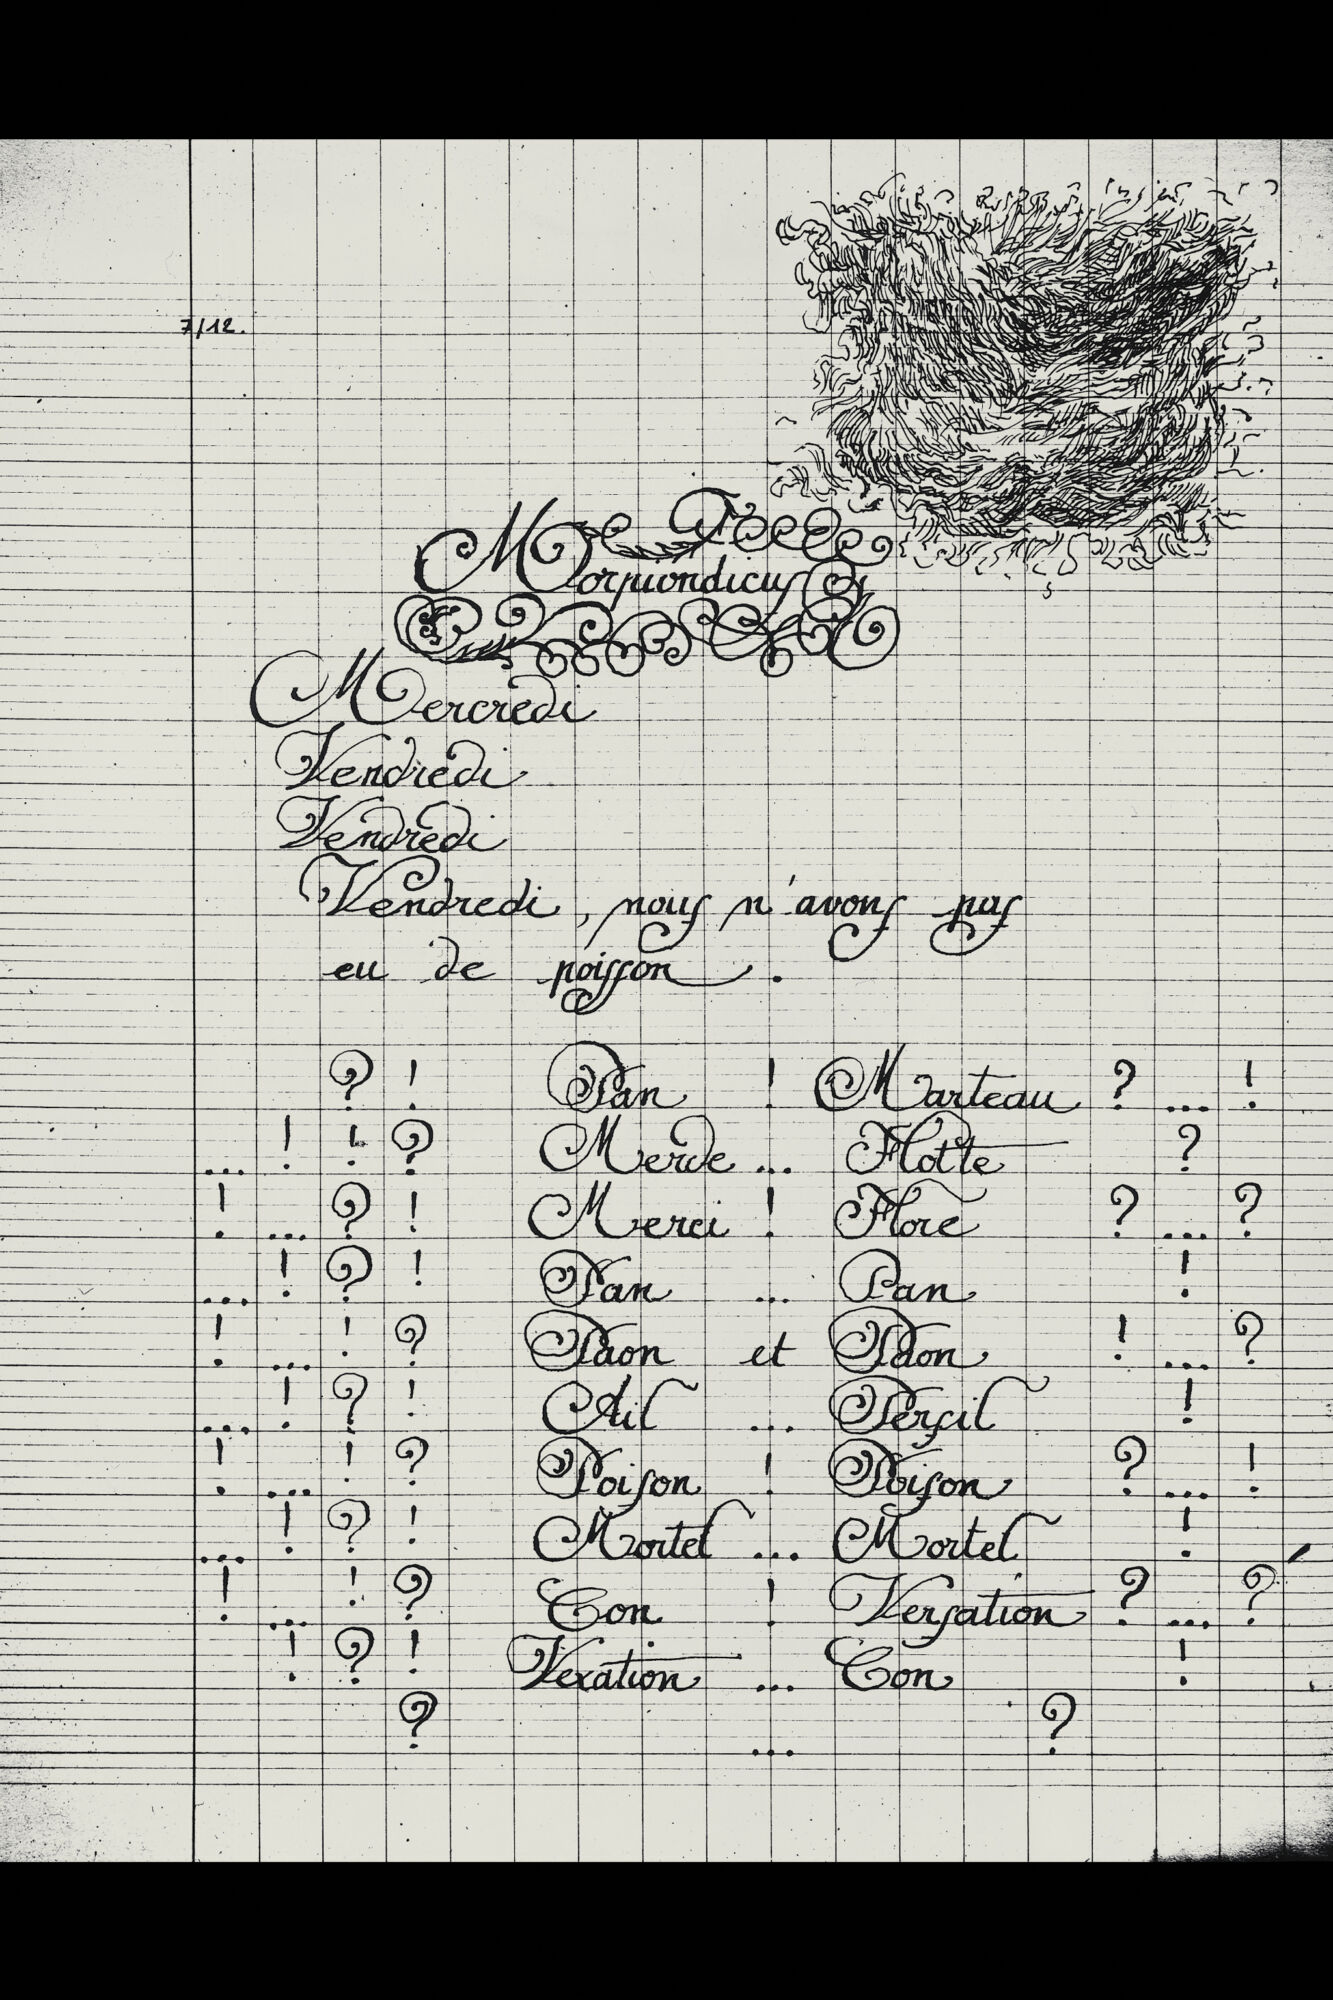 7/12.
Morpiondicus
Mercredi
Vendredi
Vendredi
Vendredi, nous n'avons pas
eu de poisson.
? ! Pan ! Marteau ? ... !
... ! ! ? Merde ... Flotte ?
! ... ? ! Merci ! Flore ? ... ?
... ! ? ! Pan ... Pan !
! ... ! ? Paon et Paon ! ... ?
... ! ? ! Ail ... Persil !
! ... ! ? Poison ! Poison ? ... !
... ! ? ! Mortel ... Mortel !
! ... ! ? Con ! Versation ? ... ?
! ? ! Vexation ... Con !
? ... ?